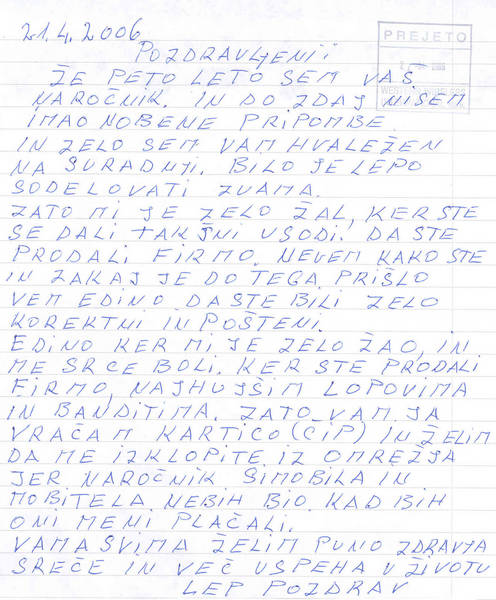 21.4.2006
PREJETO
POZDRAVLJENI!
ŽE PETO LETO SEM VAŠ
NAROČNIK. IN DO ZDAJ NISEM
IMAO NOBENE PRIPOMBE.
IN ZELO SEM VAM HVALEŽEN
NA SURADNJI. BILO JE LEPO
SODELOVATI ZVAMA.
ZATO MI JE ZELO ŽAL, KER STE
SE DALI TAKŠNI USODI. DA STE
PRODALI FIRMO. NEVEM KAKO STE
IN ZAKAJ JE DO TEGA PRIŠLO
VEM EDINO DA STE BILI ZELO
KOREKTNI IN POŠTENI.
EDINO KER MI JE ZELO ŽAO, IN
ME SRCE BOLI. KER STE PRODALI
FIRMO, NAJHUJŠIM LOPOVIMA
IN BANDITIMA. ZATO VAM JA
VRAČAM KARTICO (CIP) IN ŽELIM
DA ME IZKLOPITE IZ OMREŽJA
JER NAROČNIK SIMOBILA IN
MOBITELA NEBIH BIO KAD BIH
ONI MENI PLAČALI.
VAMA SVIMA ŽELIM PUNO ZDRAVJA
SREČE IN VEČ USPEHA U ŽIVOTU
LEP POZDRAV